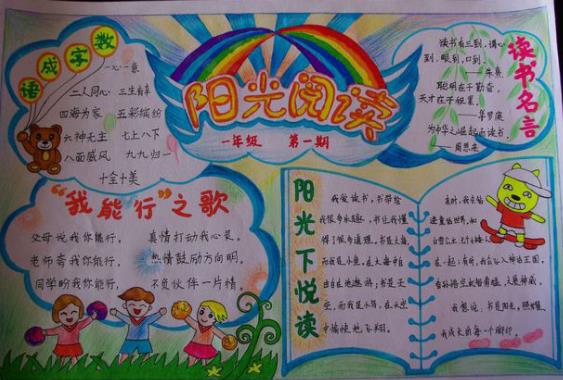 数字成语
一心一意
二人同心 三生有幸
四海为家 五彩缤纷
六神无主 七上八下
八面威风 九九归一
十全十美
阳光阅读
一年级 第一期
读书名言
读书有三到，谓心
到，眼到，口到。
——朱熹
聪明在于勤奋，
天才在于积累。
——华罗庚
为中华之崛起而读书。
——周恩来
“我能行”之歌
父母说我你能行，
老师夸我你能行，
同学盼我你能行，
真情打动我心灵。
热情鼓励方向明。
不负伙伴一片情。
阳光下悦读
我爱读书，书带给
我很多乐趣，书让我懂
得了很多道理。书是大海，
而我是小鱼，在大海中自
由自在地遨游；书是天
空，而我是小鸟，在天空
中愉快地飞翔。
有时，我会钻
我想说：书是阳光，照耀着
我成长的每一个脚印。